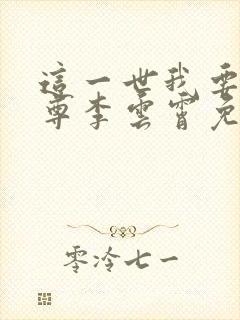 這一世我要
尊李雲霄免
零泠七一